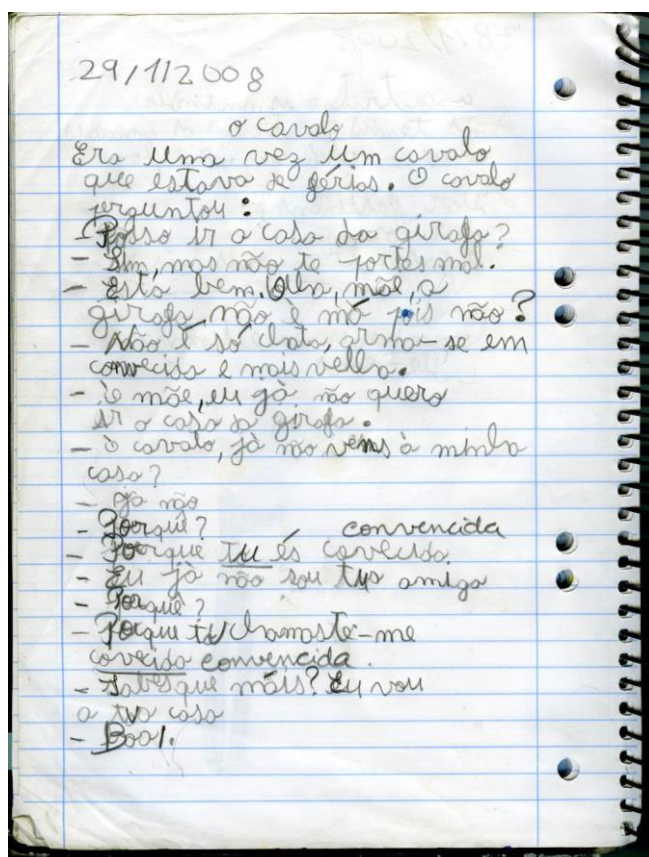 29/1/2008
o cavalo
Era uma vez um cavalo
que estava de férias. O cavalo
perguntou:
- Posso ir a casa da girafa?
- Sim, mas não te portes mal.
- Está bem. Olha, mãe, a
girafa não é má pois não?
- Não é só chata, arma-se em
convecida e mais velha.
- ò mãe, eu já não quero
ir a casa da girafa.
- ò cavalo, já não vens à minha
casa?
- Já não
- Porquê?
convencida
- Porque tu és convecida
- Eu já não sou tua amiga
- Porquê?
- Porque tu chamaste-me
covecida convencida.
- Sabes que máis? Eu vou
a tua casa
- Boa!.